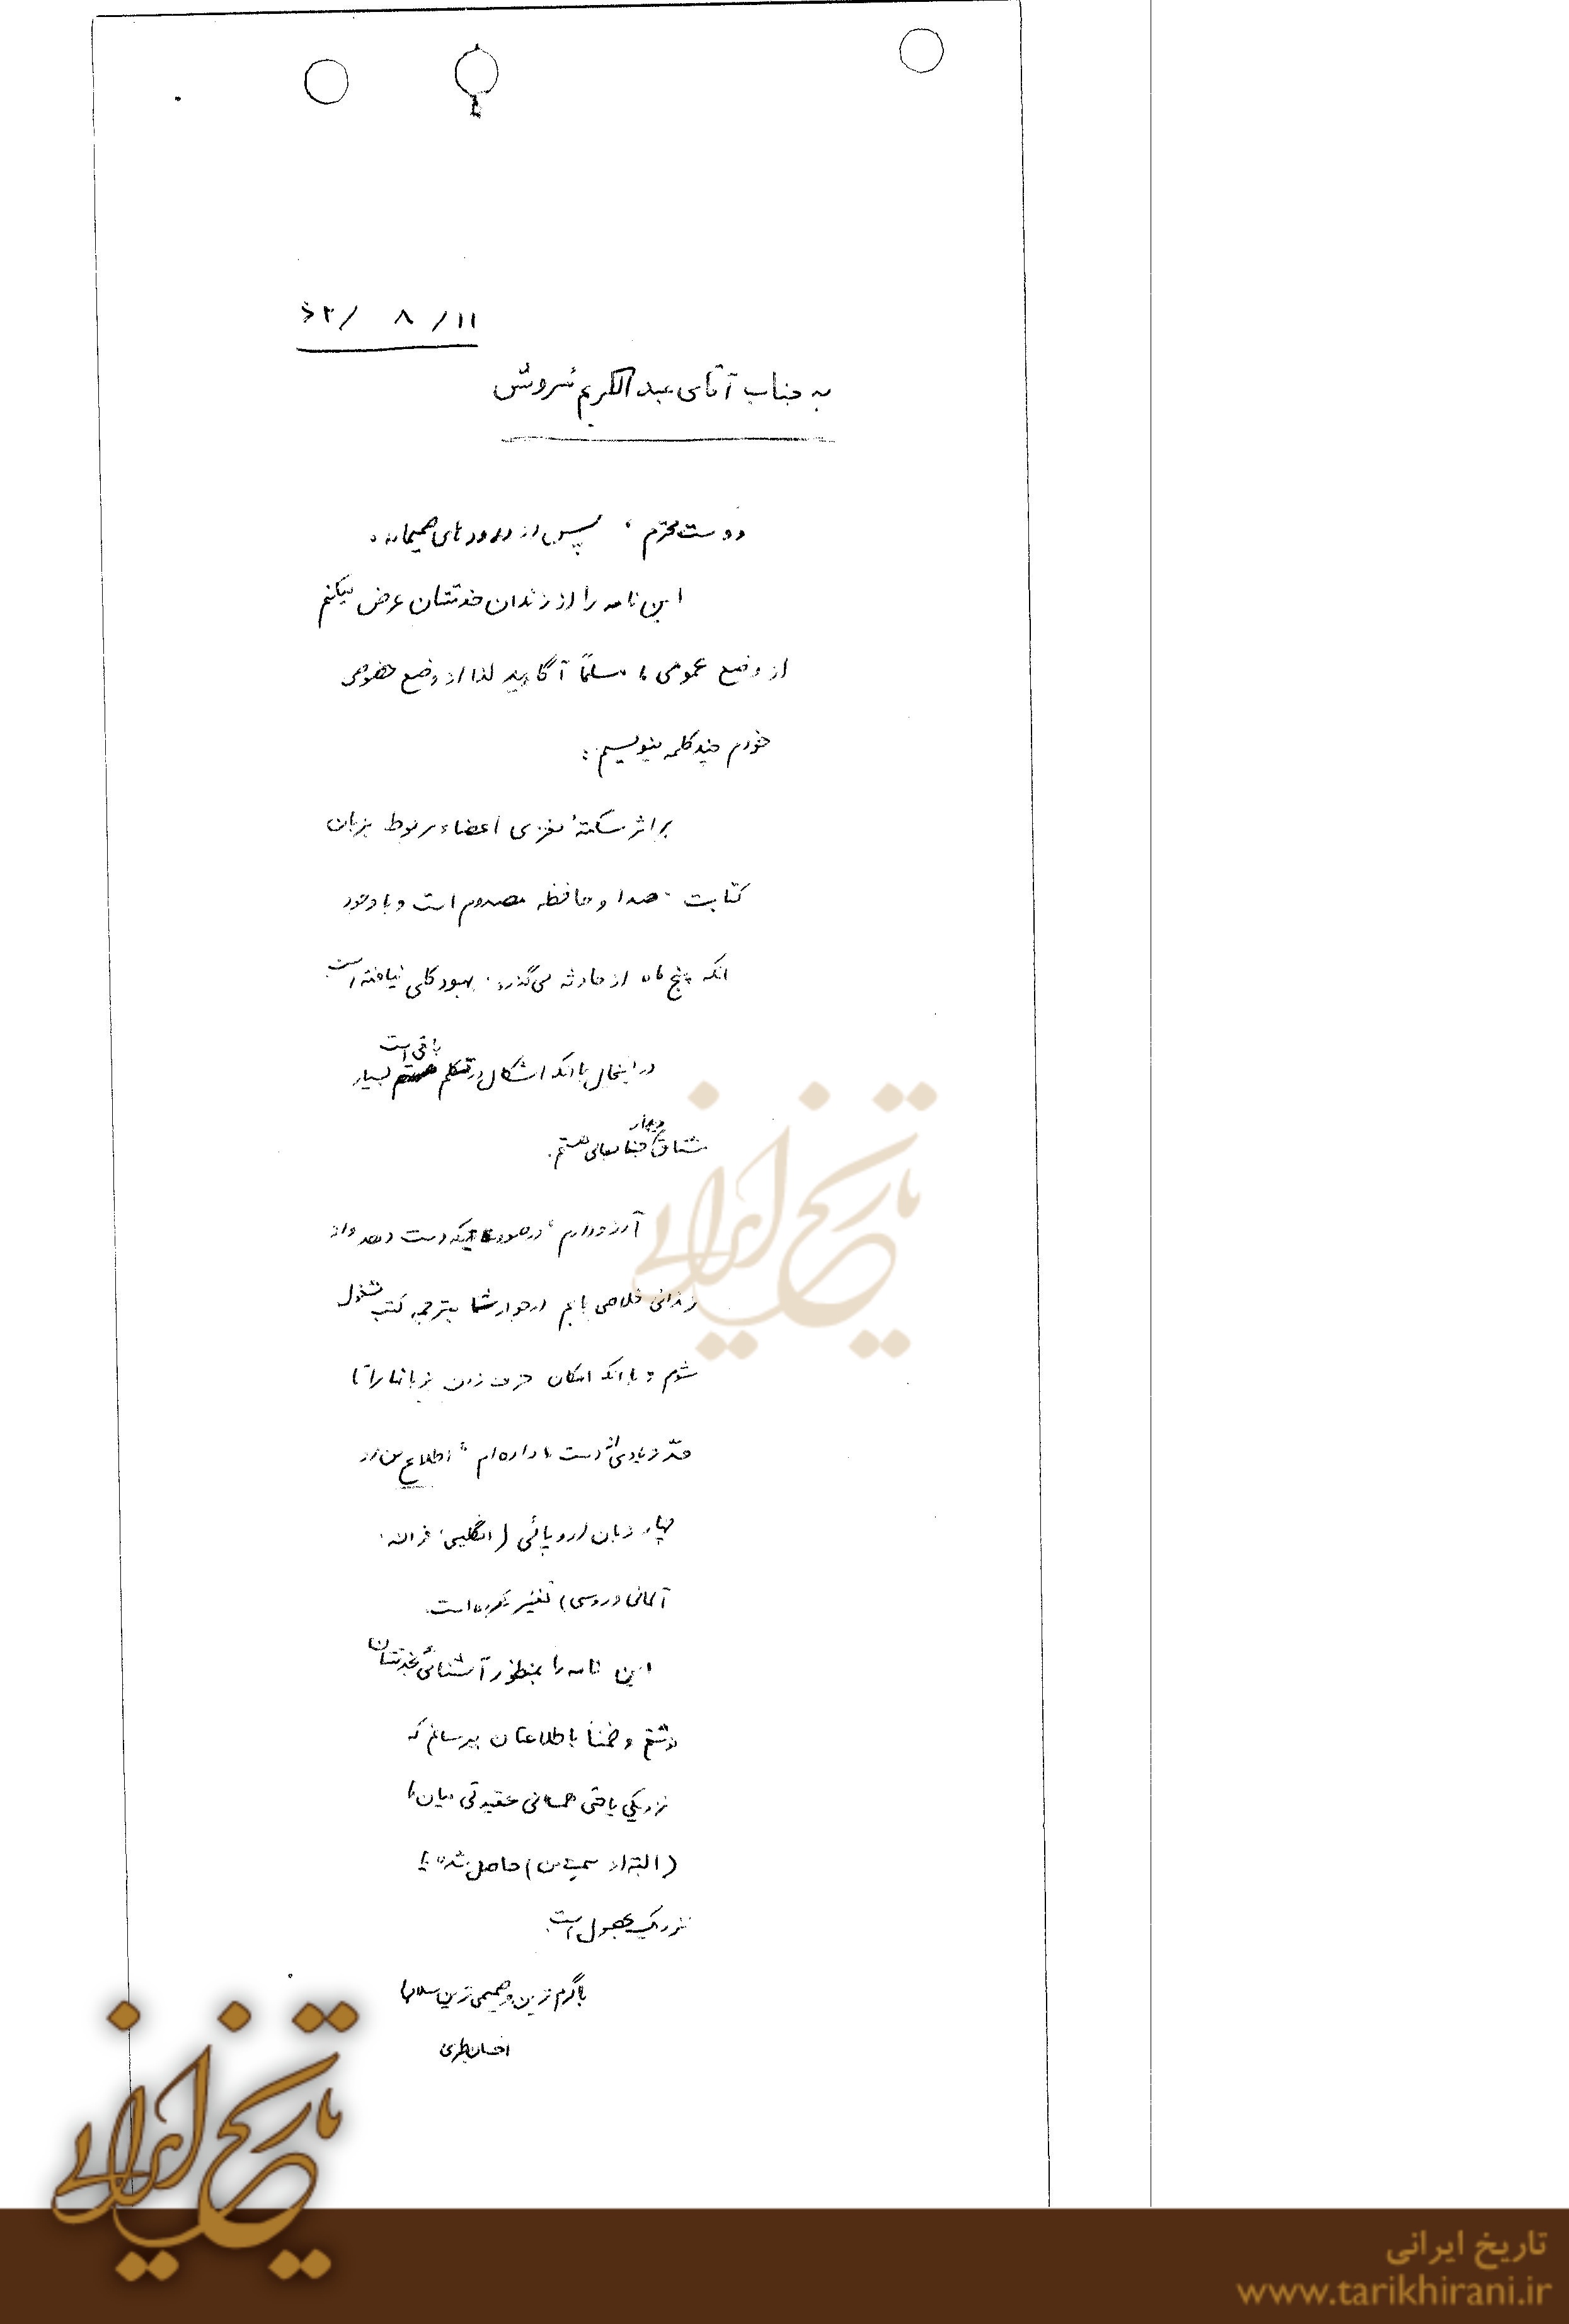 ۶۲/ ۸ /۱۱
به جناب آقای عبدالکریم سروش
دوست محترم، پس از درودهای صمیمانه،
این نامه را از زندان خدمتتان عرض میکنم
از وضع عمومی ما مسلماً آگاهید لذا از وضع خصوصی
خودم چند کلمه بنویسم:
بر اثر سکتهٔ مغزی اعضاء مربوط بزبان
کتابت، صدا و حافظه مصدوم است و با وجود
آنکه پنج ماه از حادثه می‌گذرد، بهبود کلی نیافته است
در اینحال با آنکه اشکال در تکلم باقی است بسیار
مشتاق دیدار جنابعالی هستم.
آرزو دارم، در صورت آنکه دست دهد و از
زندان خلاصی یابم در جوار شما بترجمه کتب مشغول
شوم و با آنکه امکان حرف زدن بزبانها را تا
حدّ زیادی از دست داده‌ام، اطلاع من از
چهار زبان اروپائی (انگلیسی، فرانسه،
آلمانی و روسی) تغییر نکرده است.
این نامه را بمنظور آشنائی بخدمتتان
نوشتم و ضمناً باطلاعتان میرسانم که
نزدیکی یا حتی همسانی عقیدتی میان ما
(البته از سمت من) حاصل شده یا
نزدیک بحصول است.
با گرم‌ترین و صمیمی‌ترین سلامها
احسان طبری
تاریخ ایرانی
تاریخ ایرانی
تاریخ ایرانی
www.tarikhirani.ir